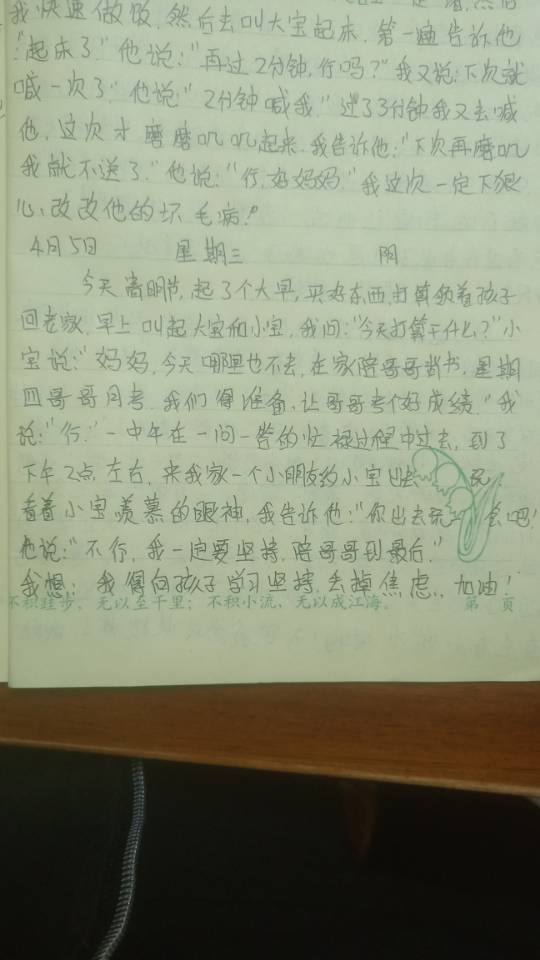 我快速做饭,然后去叫大宝起床,第一遍告诉他
“起床了”他说:“再过2分钟,行吗?”我又说:下次就
喊一次了”他说:“2分钟喊我,”过了3分钟我又去喊
他,这次才磨磨叽叽起来,我告诉他:“下次再磨叽
我就不送了.”他说:“行,好妈妈,”我这次一定下狠
心,改改他的坏毛病!
4月5日 星期三 阴
今天清明节,起了个大早,买好东西,打算领着孩子
回老家,早上叫起大宝和小宝,我问:“今天打算干什么?”小
宝说:“妈妈,今天哪里也不去,在家陪哥哥背书,星期
四哥哥月考,我们得准备,让哥哥考个好成绩,”我
说:“行.”一中午在一问一答的忙碌过程中过去,到了
下午2点左右,来我家一个小朋友约小宝出去玩,
看着小宝羡慕的眼神,我告诉他:“你出去玩会吧!
他说:“不行,我一定要坚持,陪哥哥到最后.”
我想:我得向孩子学习坚持,丢掉焦虑,加油!
不积跬步,无以至千里;不积小流,无以成江海。 第 页